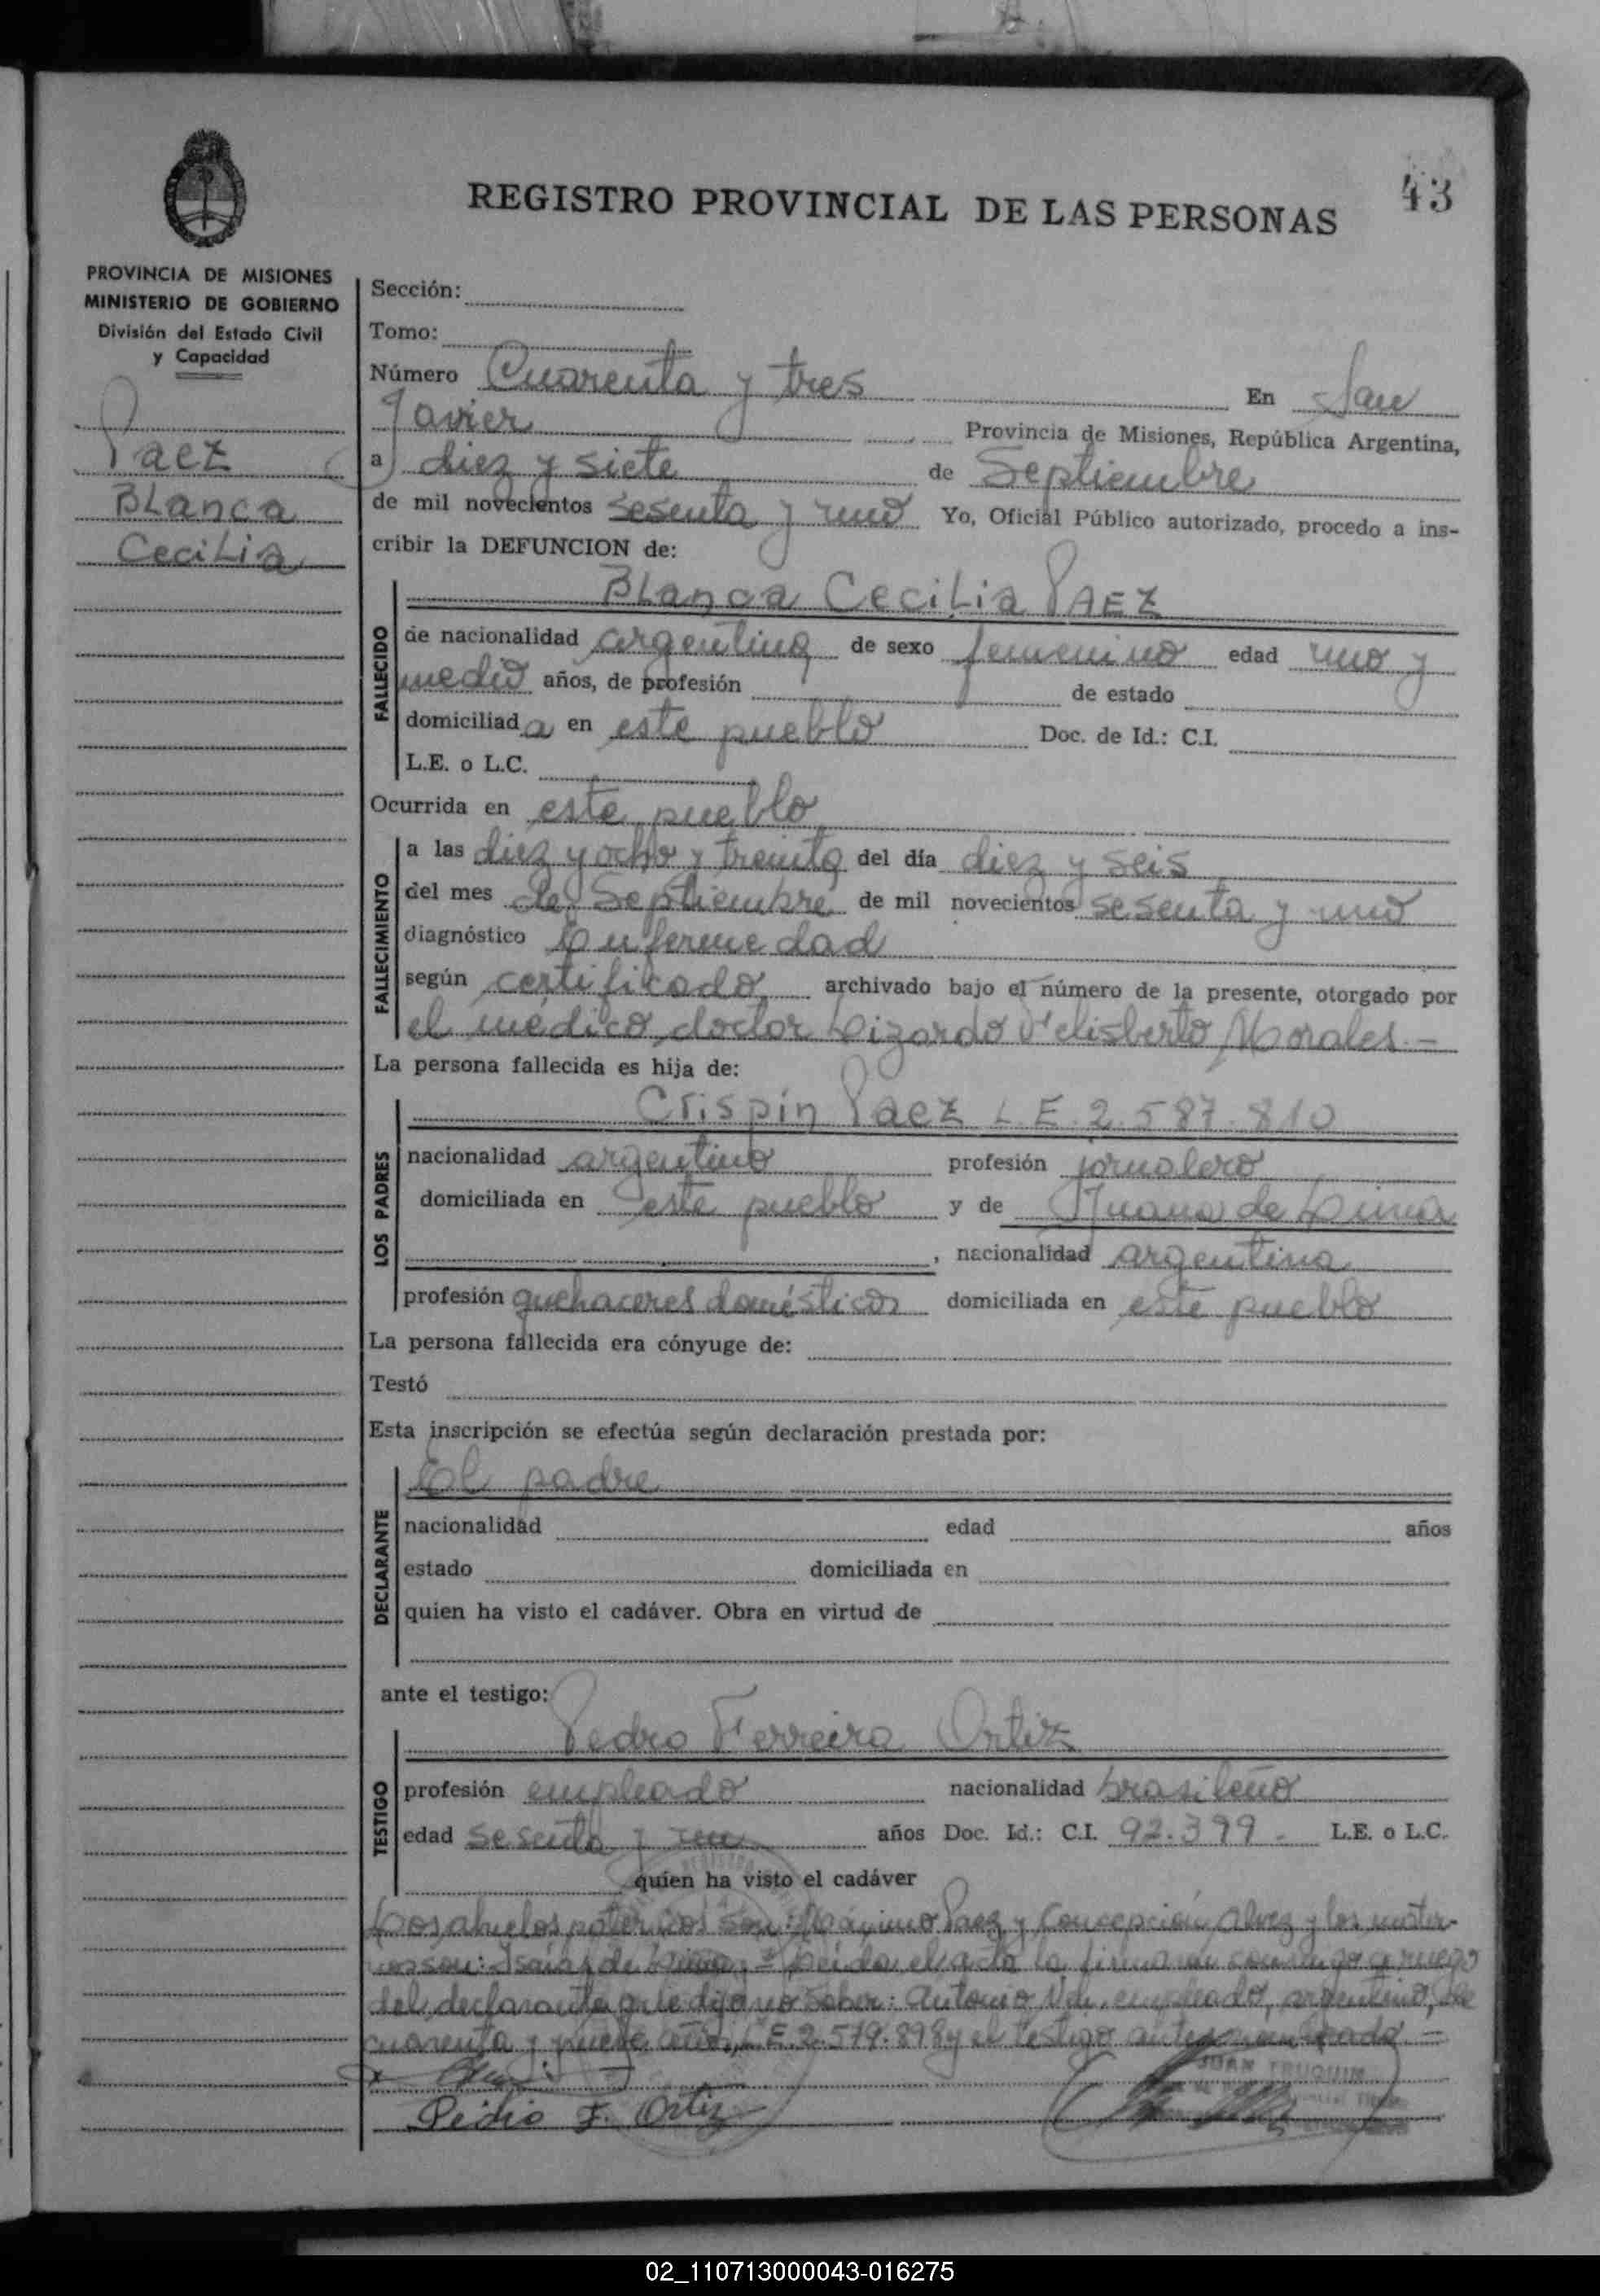 43
REGISTRO PROVINCIAL DE LAS PERSONAS
PROVINCIA DE MISIONES
MINISTERIO DE GOBIERNO
División del Estado Civil
y Capacidad
Paez
Blanca
Cecilia
Sección:
Tomo:
Número Cuarenta y tres En San
Javier Provincia de Misiones, República Argentina,
a diez y siete de Septiembre
de mil novecientos sesenta y uno Yo, Oficial Público autorizado, procedo a ins-
cribir la DEFUNCION de:
Blanca Cecilia PAEZ
FALLECIDO
de nacionalidad argentina de sexo femenino edad uno y
medio años, de profesión de estado
domiciliada en este pueblo Doc. de Id.: C.I.
L.E. o L.C.
Ocurrida en este pueblo
FALLECIMIENTO
a las diez y ocho y treinta del día diez y seis
del mes de Septiembre de mil novecientos sesenta y uno
diagnóstico Enfermedad
según certificado archivado bajo el número de la presente, otorgado por
el médico doctor Lizardo Felisberto Morales.-
La persona fallecida es hija de:
LOS PADRES
Crispin Paez L.E. 2.587.810
nacionalidad argentino profesión jornalero
domiciliada en este pueblo y de Juana de Lima
, nacionalidad argentina
profesión quehaceres domésticos domiciliada en este pueblo
La persona fallecida era cónyuge de:
Testó
Esta inscripción se efectúa según declaración prestada por:
DECLARANTE
El padre
nacionalidad edad años
estado domiciliada en
quien ha visto el cadáver. Obra en virtud de
ante el testigo:
TESTIGO
Pedro Ferreira Ortiz
profesión empleado nacionalidad brasileño
edad sesenta y un años Doc. Id.: C.I. 92.399.- L.E. o L.C.
quien ha visto el cadáver
Los abuelos paternos son: Máximo Paez y Concepción Alvez y los mater-
nos son: Isaías de Lima.= Leída el acta la firman conmigo a ruego
del declarante que dijo no saber: Antonio empleado, argentino, de
cuarenta y nueve años, L.E. 2.579.898 y el testigo antes nombrado.-
Pedro F. Ortiz
JUAN TRUQUIN
02_110713000043-016275